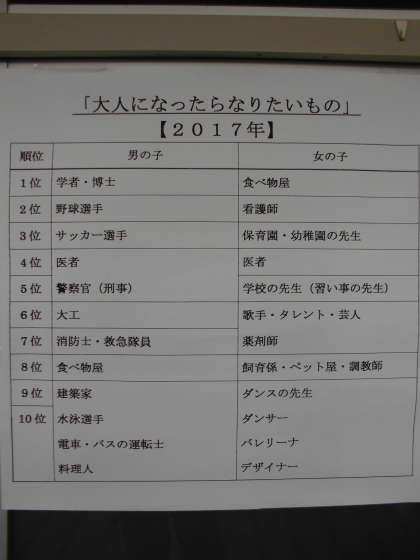 「大人になったらなりたいもの」
【２０１７年】
順位 男の子 女の子
1位 学者・博士 食べ物屋
2位 野球選手 看護師
3位 サッカー選手 保育園・幼稚園の先生
4位 医者 医者
5位 警察官（刑事） 学校の先生（習い事の先生）
6位 大工 歌手・タレント・芸人
7位 消防士・救急隊員 薬剤師
8位 食べ物屋 飼育係・ペット屋・調教師
9位 建築家 ダンスの先生
10位 水泳選手 ダンサー
電車・バスの運転士 バレリーナ
料理人 デザイナー